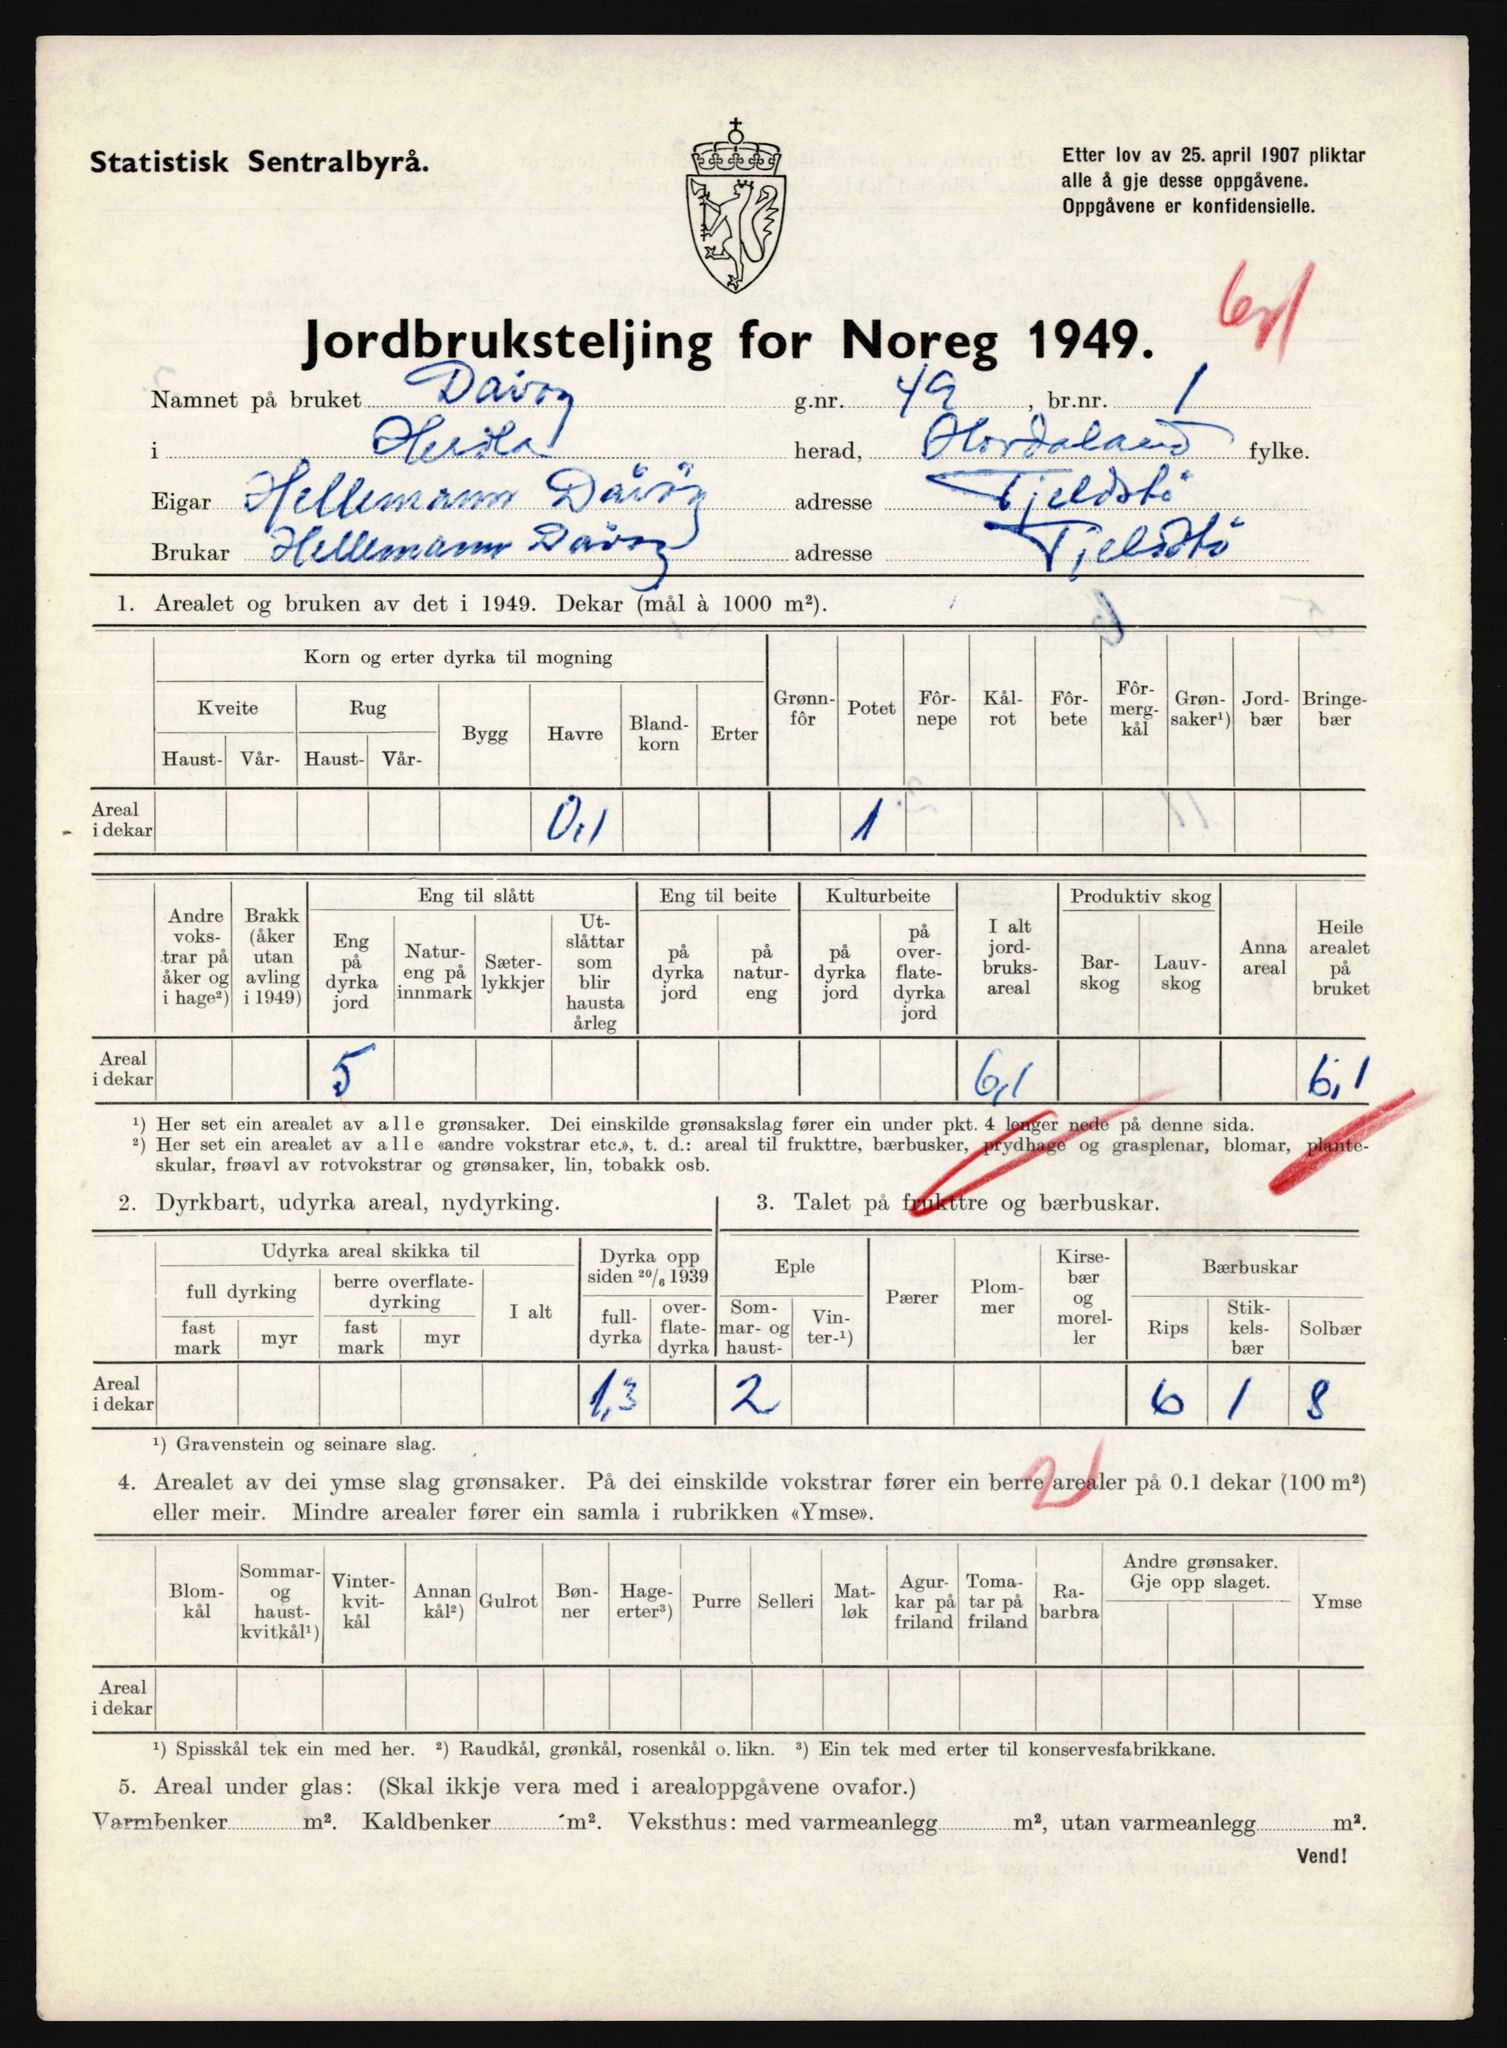 Statistisk Sentralbyrå.
Etter lov av 25. april 1907 pliktar
alle å gje desse oppgåvene.
Oppgåvene er konfidensielle.
Jordbruksteljing for Noreg 1949.
Namnet på bruket Dåvøy g.nr. 49, br.nr. 1
i Herdla herad, Hordaland fylke.
Eigar Hellemann Dåvøy adresse Tjeldstö
Brukar Hellemann Dåvøy adresse Tjeldstö
1. Arealet og bruken av det i 1949. Dekar (mål à 1000 m²).
Korn og erter dyrka til mogning
Kveite Rug
Haust- Vår- Haust- Vår- Bygg Havre Bland-korn Erter Grønn-fôr Potet Fôr-nepe Kål-rot Fôr-bete Fôr-merg-kål Grøn-saker¹) Jord-bær Bringe-bær
Areal i dekar 0,1 1
Eng til slått Eng til beite Kulturbeite Produktiv skog
Andre voks-trar på åker og i hage²) Brakk (åker utan avling i 1949) Eng på dyrka jord Natur-eng på innmark Sæter-lykkjer Ut-slåttar som blir hausta årleg på dyrka jord på natur-eng på dyrka jord på over-flate-dyrka jord I alt jord-bruks-areal Bar-skog Lauv-skog Anna areal Heile arealet på bruket
Areal i dekar 5 6,1 6,1
¹) Her set ein arealet av alle grønsaker. Dei einskilde grønsakslag fører ein under pkt. 4 lenger nede på denne sida.
²) Her set ein arealet av alle «andre vokstrar etc.», t. d.: areal til frukttre, bærbusker, prydhage og grasplenar, blomar, plante-
skular, frøavl av rotvokstrar og grønsaker, lin, tobakk osb.
2. Dyrkbart, udyrka areal, nydyrking.
3. Talet på frukttre og bærbuskar.
Udyrka areal skikka til Dyrka opp siden 20/6 1939 Eple Bærbuskar
full dyrking berre overflate-dyrking I alt
fast mark myr fast mark myr full-dyrka over-flate-dyrka Som-mar- og haust- Vin-ter-¹) Pærer Plom-mer Kirse-bær og morel-ler Rips Stik-kels-bær Solbær
Areal i dekar 1,3 2 6 1 8
¹) Gravenstein og seinare slag.
2
4. Arealet av dei ymse slag grønsaker. På dei einskilde vokstrar fører ein berre arealer på 0.1 dekar (100 m²)
eller meir. Mindre arealer fører ein samla i rubrikken «Ymse».
Blom-kål Sommar- og haust-kvitkål¹) Vinter-kvit-kål Annan kål²) Gulrot Bøn-ner Hage-erter³) Purre Selleri Mat-løk Agur-kar på friland Toma-tar på friland Ra-barbra Andre grønsaker. Gje opp slaget. Ymse
Areal i dekar
¹) Spisskål tek ein med her. ²) Raudkål, grønkål, rosenkål o. likn. ³) Ein tek med erter til konservesfabrikkane.
5. Areal under glas: (Skal ikkje vera med i arealoppgåvene ovafor.)
Varmbenker m². Kaldbenker m². Veksthus: med varmeanlegg m², utan varmeanlegg m².
Vend!